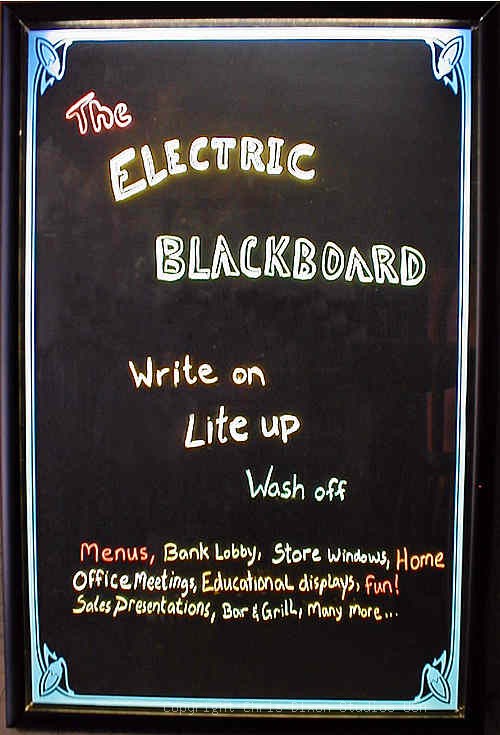 The
ELECTRIC
BLACKBOARD
Write on
Lite up
Wash off
Menus, Bank Lobby, Store Windows, Home
Office Meetings, Educational displays, Fun!
Sales Presentations, Bar & Grill, Many More...
copyright Chris Dixon Studios.com